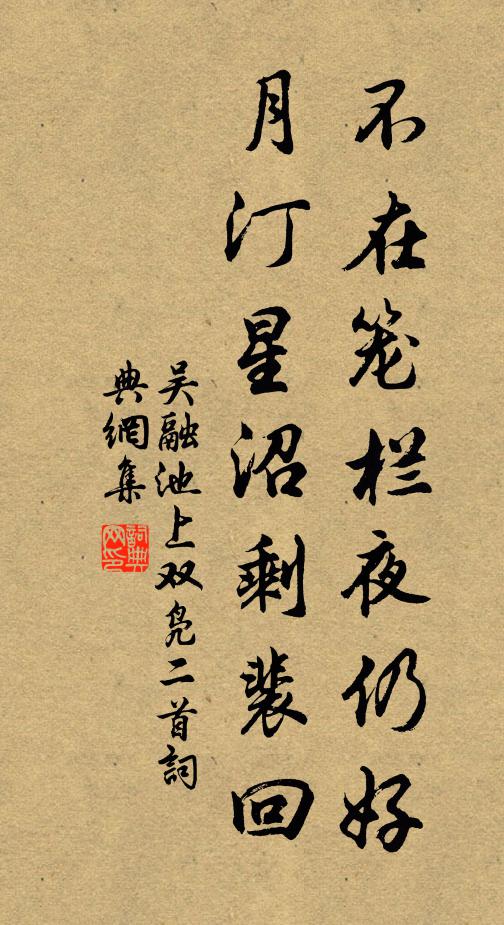 不在笼栏夜仍好
月汀星沼剩裴回
吴融池上双凫二首詞
典網集
詞典网印